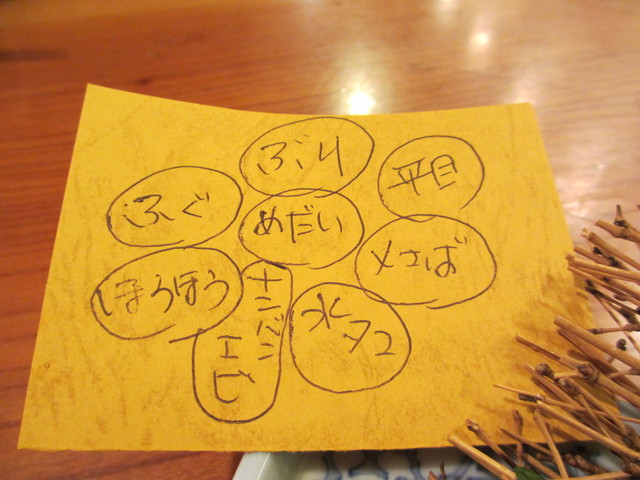 ぶり
平目
ふぐ
めだい
〆さば
ほうぼう
水タコ
ナンバン
エビ